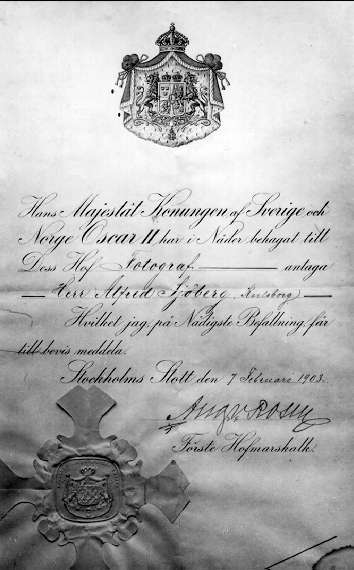 Hans Majestät Konungen af Sverige och
Norge Oscar II har i Nåder behagat till
Dess Hof Fotograf antaga
Herr Alfred Sjöberg, Karlsborg
Hvilket jag, på Nådigste Befallning, får
till bevis meddela.
Stockholms Slott den 7 Februari 1903.
Aug. v. Rosen
Förste Hofmarskalk.